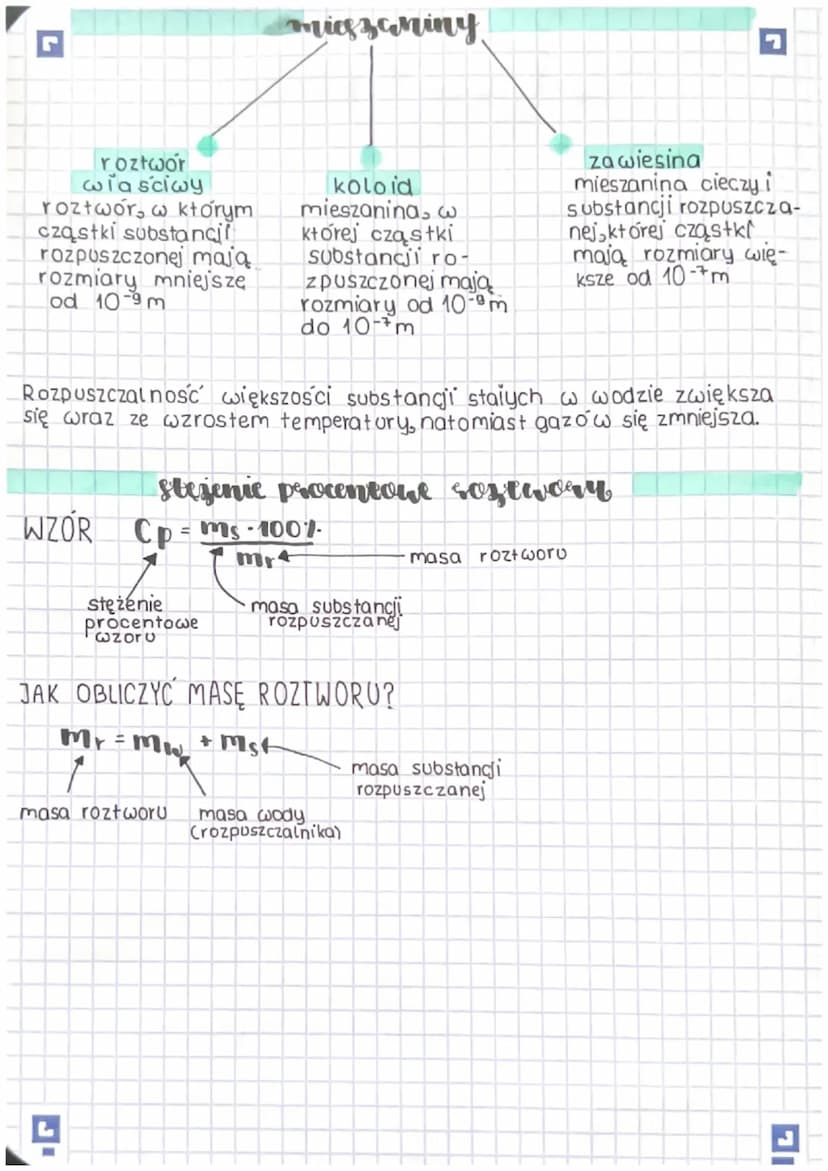 mieszaniny
roztwór
właściwy
roztwór, w którym
cząstki substancji
rozpuszczonej mają
rozmiary mniejsze
od 10⁻⁹m
koloid
mieszanina, w
której cząstki
substancji ro-
zpuszczonej mają
rozmiary od 10⁻⁹m
do 10⁻⁷m
zawiesina
mieszanina cieczy i
substancji rozpuszcza-
nej, której cząstki
mają rozmiary wię-
ksze od 10⁻⁷m
Rozpuszczalność większości substancji stałych w wodzie zwiększa
się wraz ze wzrostem temperatury, natomiast gazów się zmniejsza.
stężenie procentowe roztworu
WZÓR Cp = ms · 100%
mr
masa roztworu
stężenie
procentowe
wzoru
masa substancji
rozpuszczanej
JAK OBLICZYĆ MASĘ ROZTWORU?
mr = mw + ms
masa substancji
rozpuszczanej
masa roztworu
masa wody
(rozpuszczalnika)